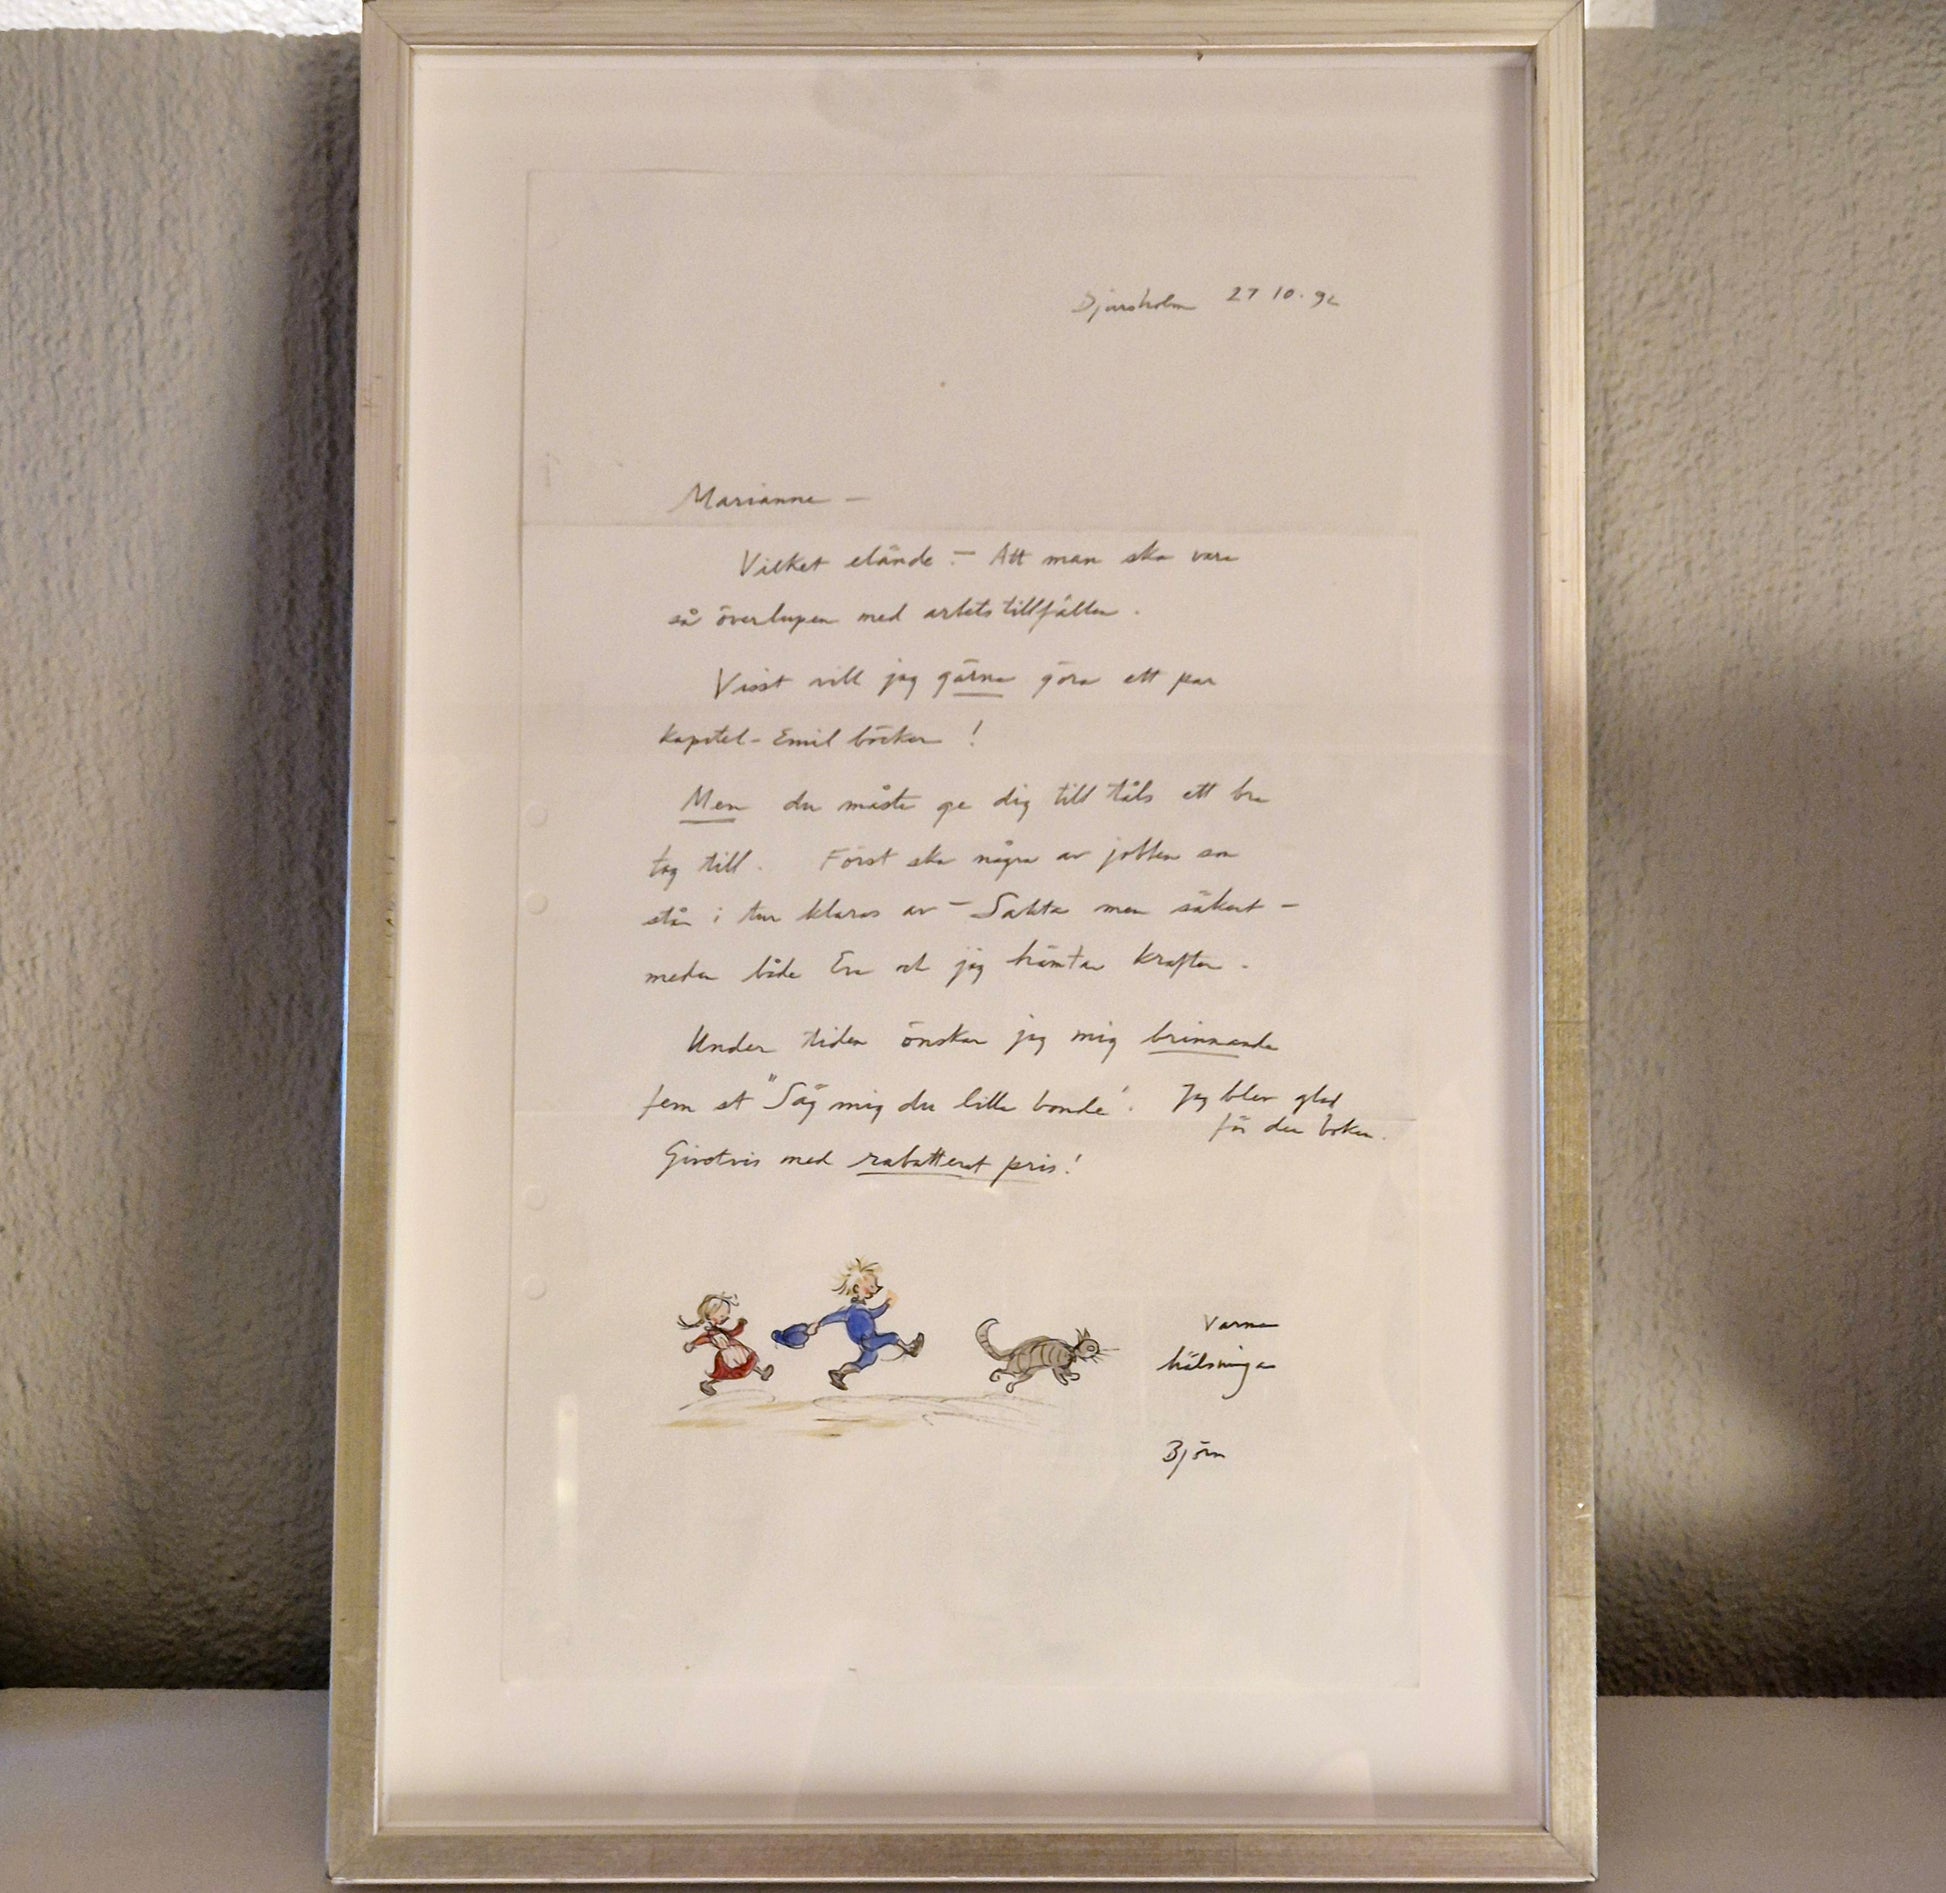 Djursholm 27 10. 92
Marianne —
Vilket elände — Att man ska vara
så överlupen med arbetstillfällen.
Visst vill jag gärna göra ett par
kapitel-Emil böcker!
Men du måste ge dig till tåls ett bra
tag till. Först ska några av jobben som
står i tur klaras av — Sakta men säkert —
medan både Eva och jag hämtar krafter.
Under tiden önskar jag mig brinnande
fem st "Säg mig du lilla bonde". Jag blev glad
för den boken.
Givetvis med rabatterat pris!
Varma
hälsningar
Björn